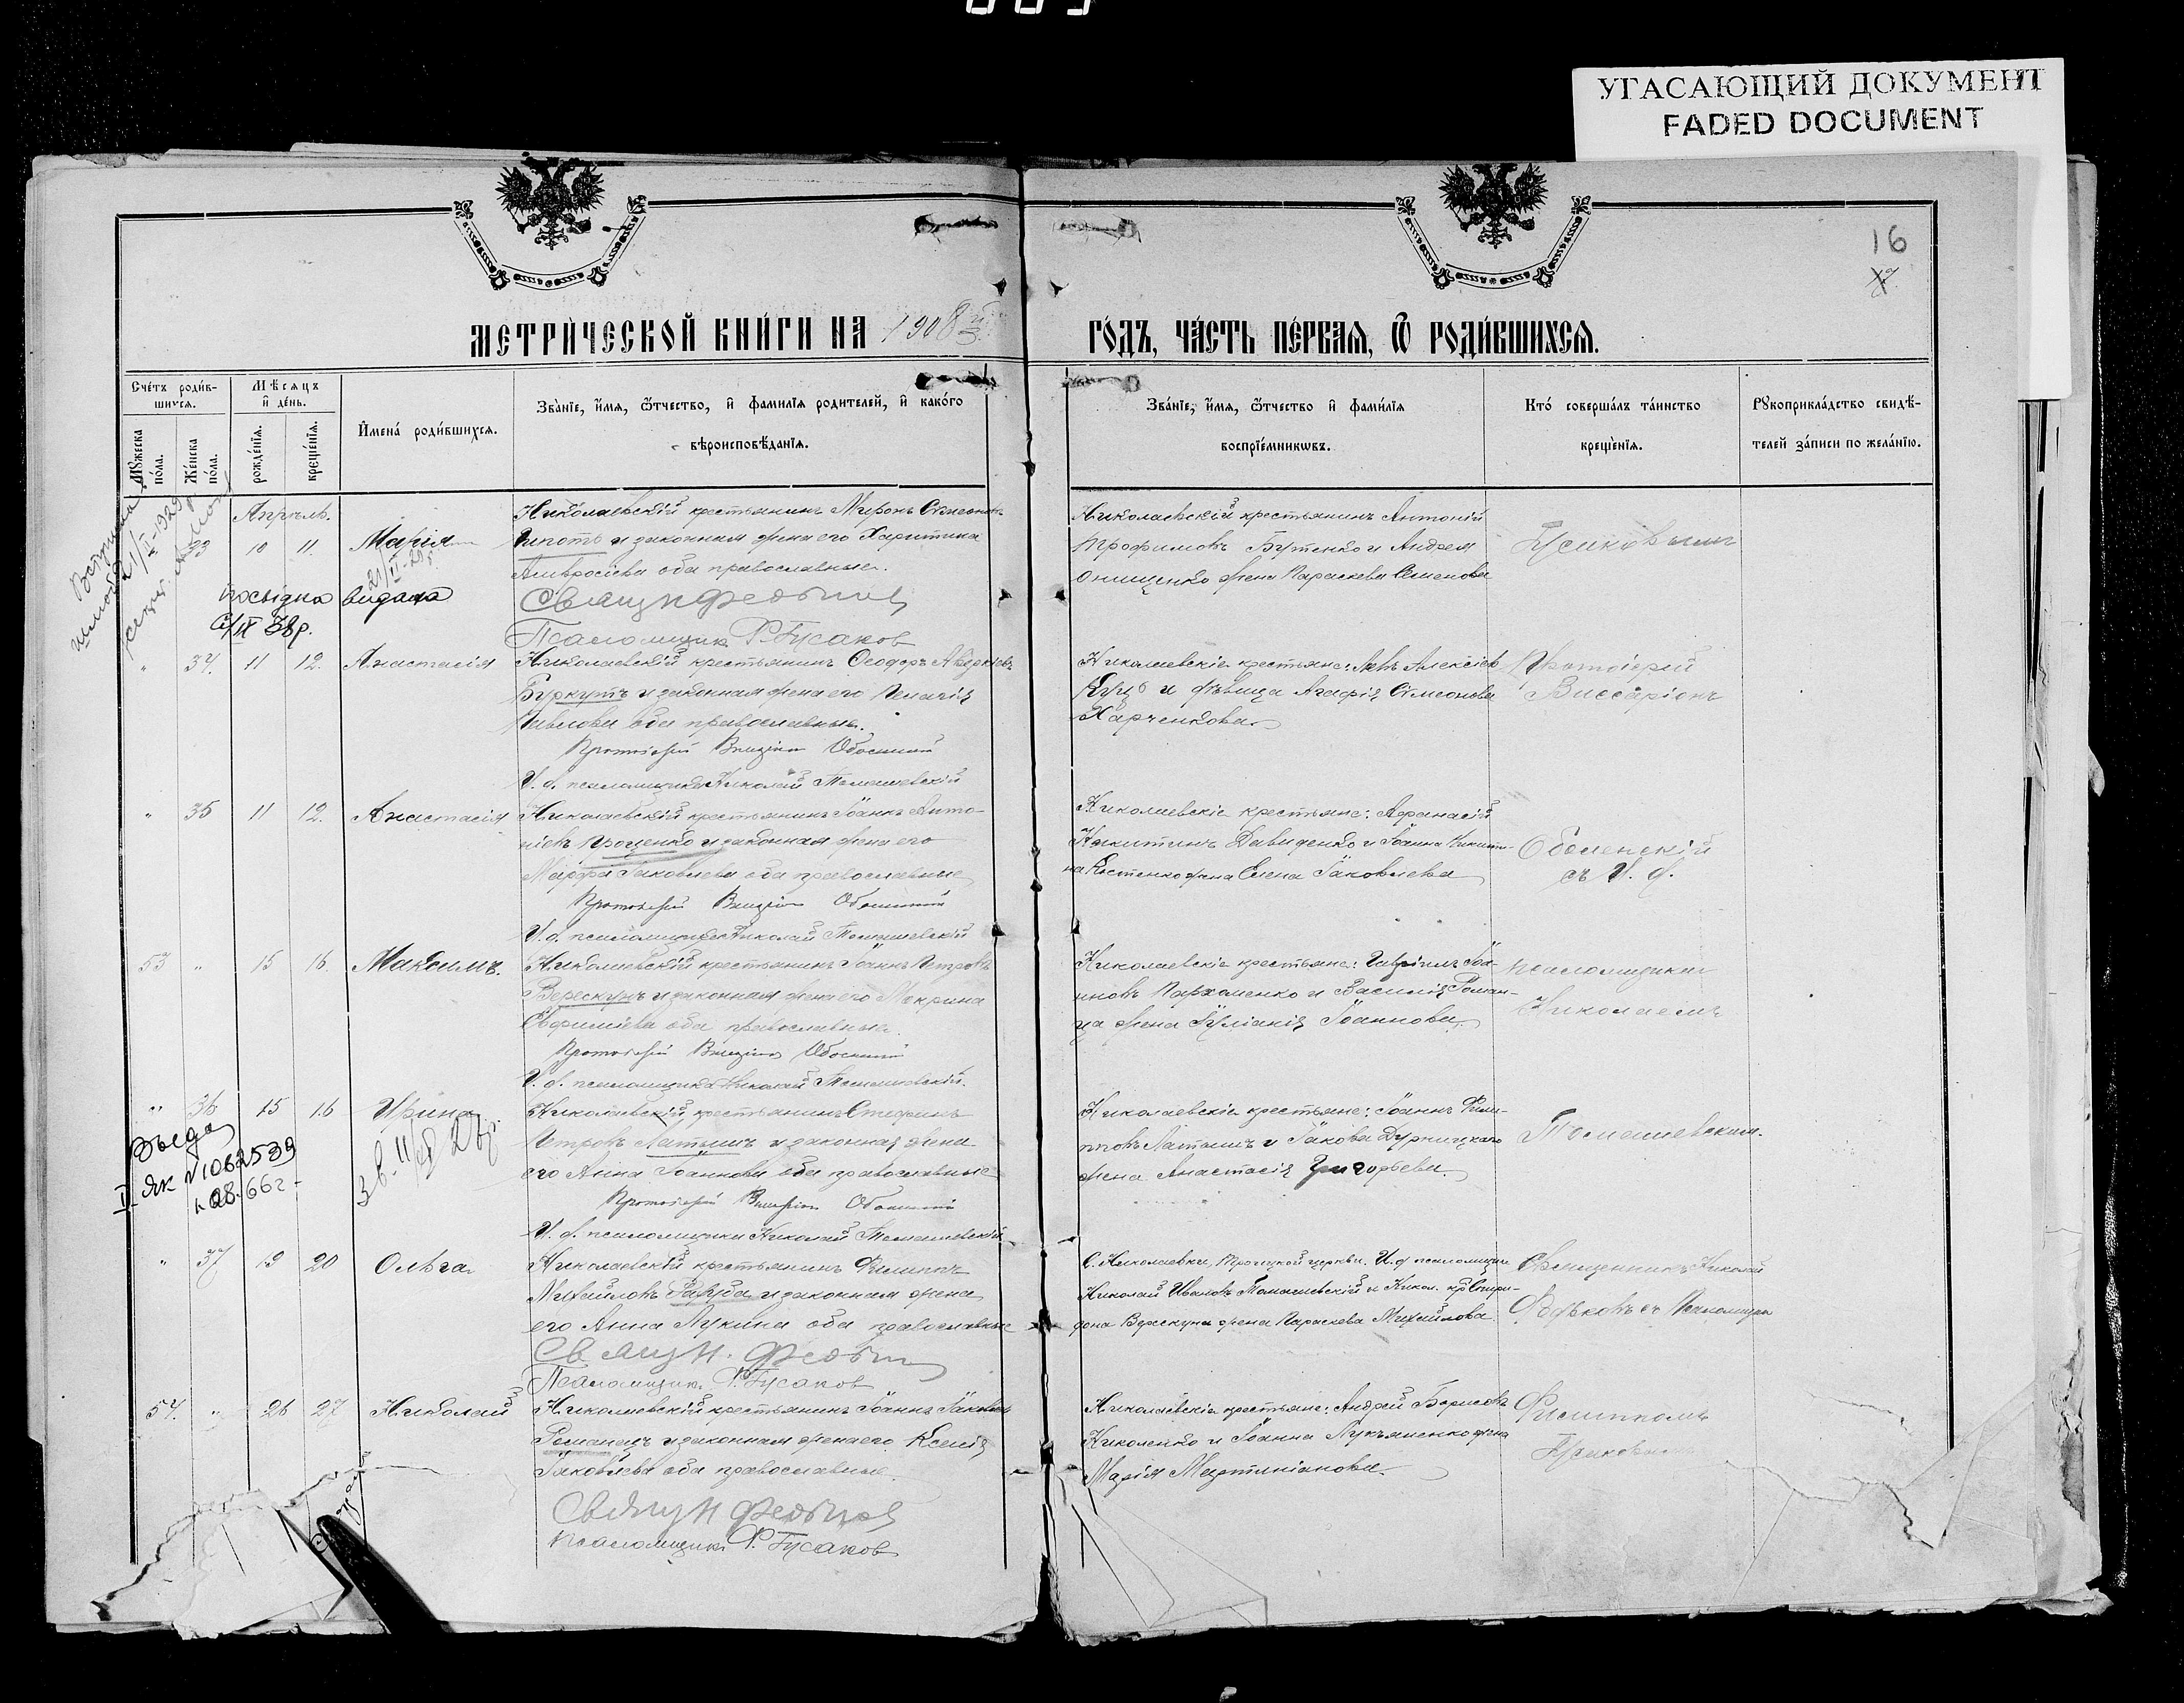 УГАСАЮЩИЙ ДОКУМЕНТ
FADED DOCUMENT
16
МЕТРИ́ЧЕСКОЙ КНИ́ГИ НА 1908й
ГО́ДЪ, ЧА́СТЬ ПЕ́РВАЯ, Ѿ РОДИ́ВШИХСЯ.
Сче́тъ роди́в-
шихся.
Мѣсяцъ
и де́нь.
Мꙋжеска
по́ла.
Же́нска
по́ла.
рожде́нїя.
креще́нїя.
Имена́ роди́вшихся.
Зва́нїе, и́мя, ѻ́тчество, и фами́лїя родителей, и како́го
вѣроисповѣ́данїя.
Зва́нїе, и́мя, ѻ́тчество и фами́лїя
воспрїе́мникωвъ.
Кто́ соверша́лъ та́инство
креще́нїя.
Рꙋкоприкла́дство свидѣ́-
телей за́писи по жела́нїю.
Апрѣль.
33 10 11. Марія
Николаевскій крестьянинъ Миронъ Симеоновъ
и законная жена его Харитина
Амвросіева оба православные.
Николаевскій крестьянинъ Антоній
Трофимовъ Бутенко и Андрея
Онищенко жена Параскева Семенова
посвідка видана
Псаломщик Гусаков
" 34. 11 12. Анастасія
Николаевскій крестьянинъ Ѳеодоръ
Буркутъ и законная жена его Пелагія
Павлова оба православные.
Протоіерей Виссаріон Оболенский
И. д. псаломщика Николай Томашевскій
Николаевскіе крестьяне: Левъ Алексіевъ
Куцъ и дѣвица Агафія Симеонова
Харченкова
Протоіерей
Виссаріонъ
" 35 11 12. Анастасія
Николаевскій крестьянинъ Іоаннъ Анто-
ніевъ Проценко и законная жена его
Марфа Іаковлева оба православные
Протоіерей Виссаріон Оболенский
И. д. псаломщика Николай Томашевскій
Николаевскіе крестьяне: Афанасій
Никитинъ Давиденко и Іоанна Никити-
на Костенко жена Елена Іаковлева
Оболенскій
съ И. д.
53 " 15 16. Максимъ.
Николаевскій крестьянинъ Іоаннъ Петровъ
Верескунъ и законная жена его Макрина
Евфиміева оба православные.
Протоіерей Виссаріон Оболенский
И. д. псаломщика Николай Томашевскій.
Николаевскіе крестьяне: Гавріилъ Іоа-
нновъ Пархоменко и Василія Роман-
ца жена Іуліанія Іоаннова.
псаломщикомъ
Николаемъ
" 36 15 16 Ирина
Николаевскій крестьянинъ Стефанъ
Петровъ Латышъ и законная жена
его Анна Іоаннова оба православные
Протоіерей Виссаріон Оболенский
И. д. псаломщика Николай Томашевскій
Николаевскіе крестьяне: Іоаннъ Фили-
пповъ Латышъ и Іакова Дурницкаго
жена Анастасія Григорьева.
Томашевскимъ.
№ 1062539
" 37 19 20 Ольга
Николаевскій крестьянинъ Филиппъ
Михайловъ и законная жена
его Анна Лукина оба православные
Псаломщик Гусаков
С. Николаевки, Троицкой церкви. И. д. псаломщика
Николай Ивановъ Томашевскій и Никол. кр. Спири-
дона Верескуна жена Параскева Михайлова.
Священникъ Николай
54. " 26 27 Николай
Николаевскій крестьянинъ Іоаннъ Іаковлевъ
Романецъ и законная жена его Ксенія
Іаковлева оба православные.
псаломщик Гусаков
Николаевскіе крестьяне: Андрей Борисовъ
Николенко и Іоанна Лукьяненко жена
Марія Мартиніанова.
Филиппомъ